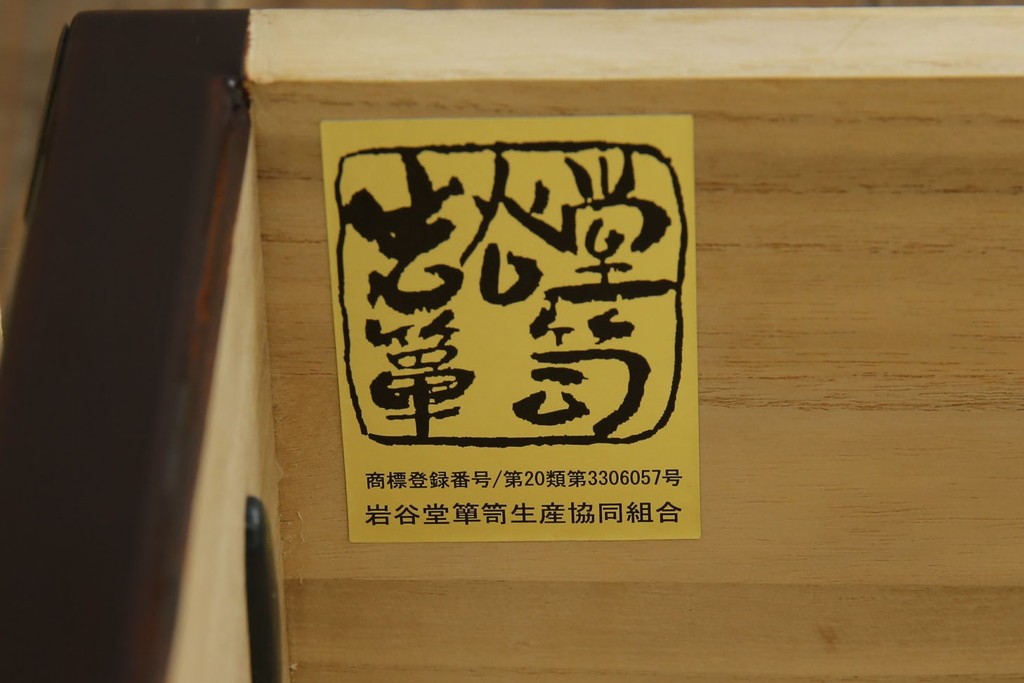 岩谷堂
箪笥
商標登録番号/第20類第3306057号
岩谷堂箪笥生産協同組合